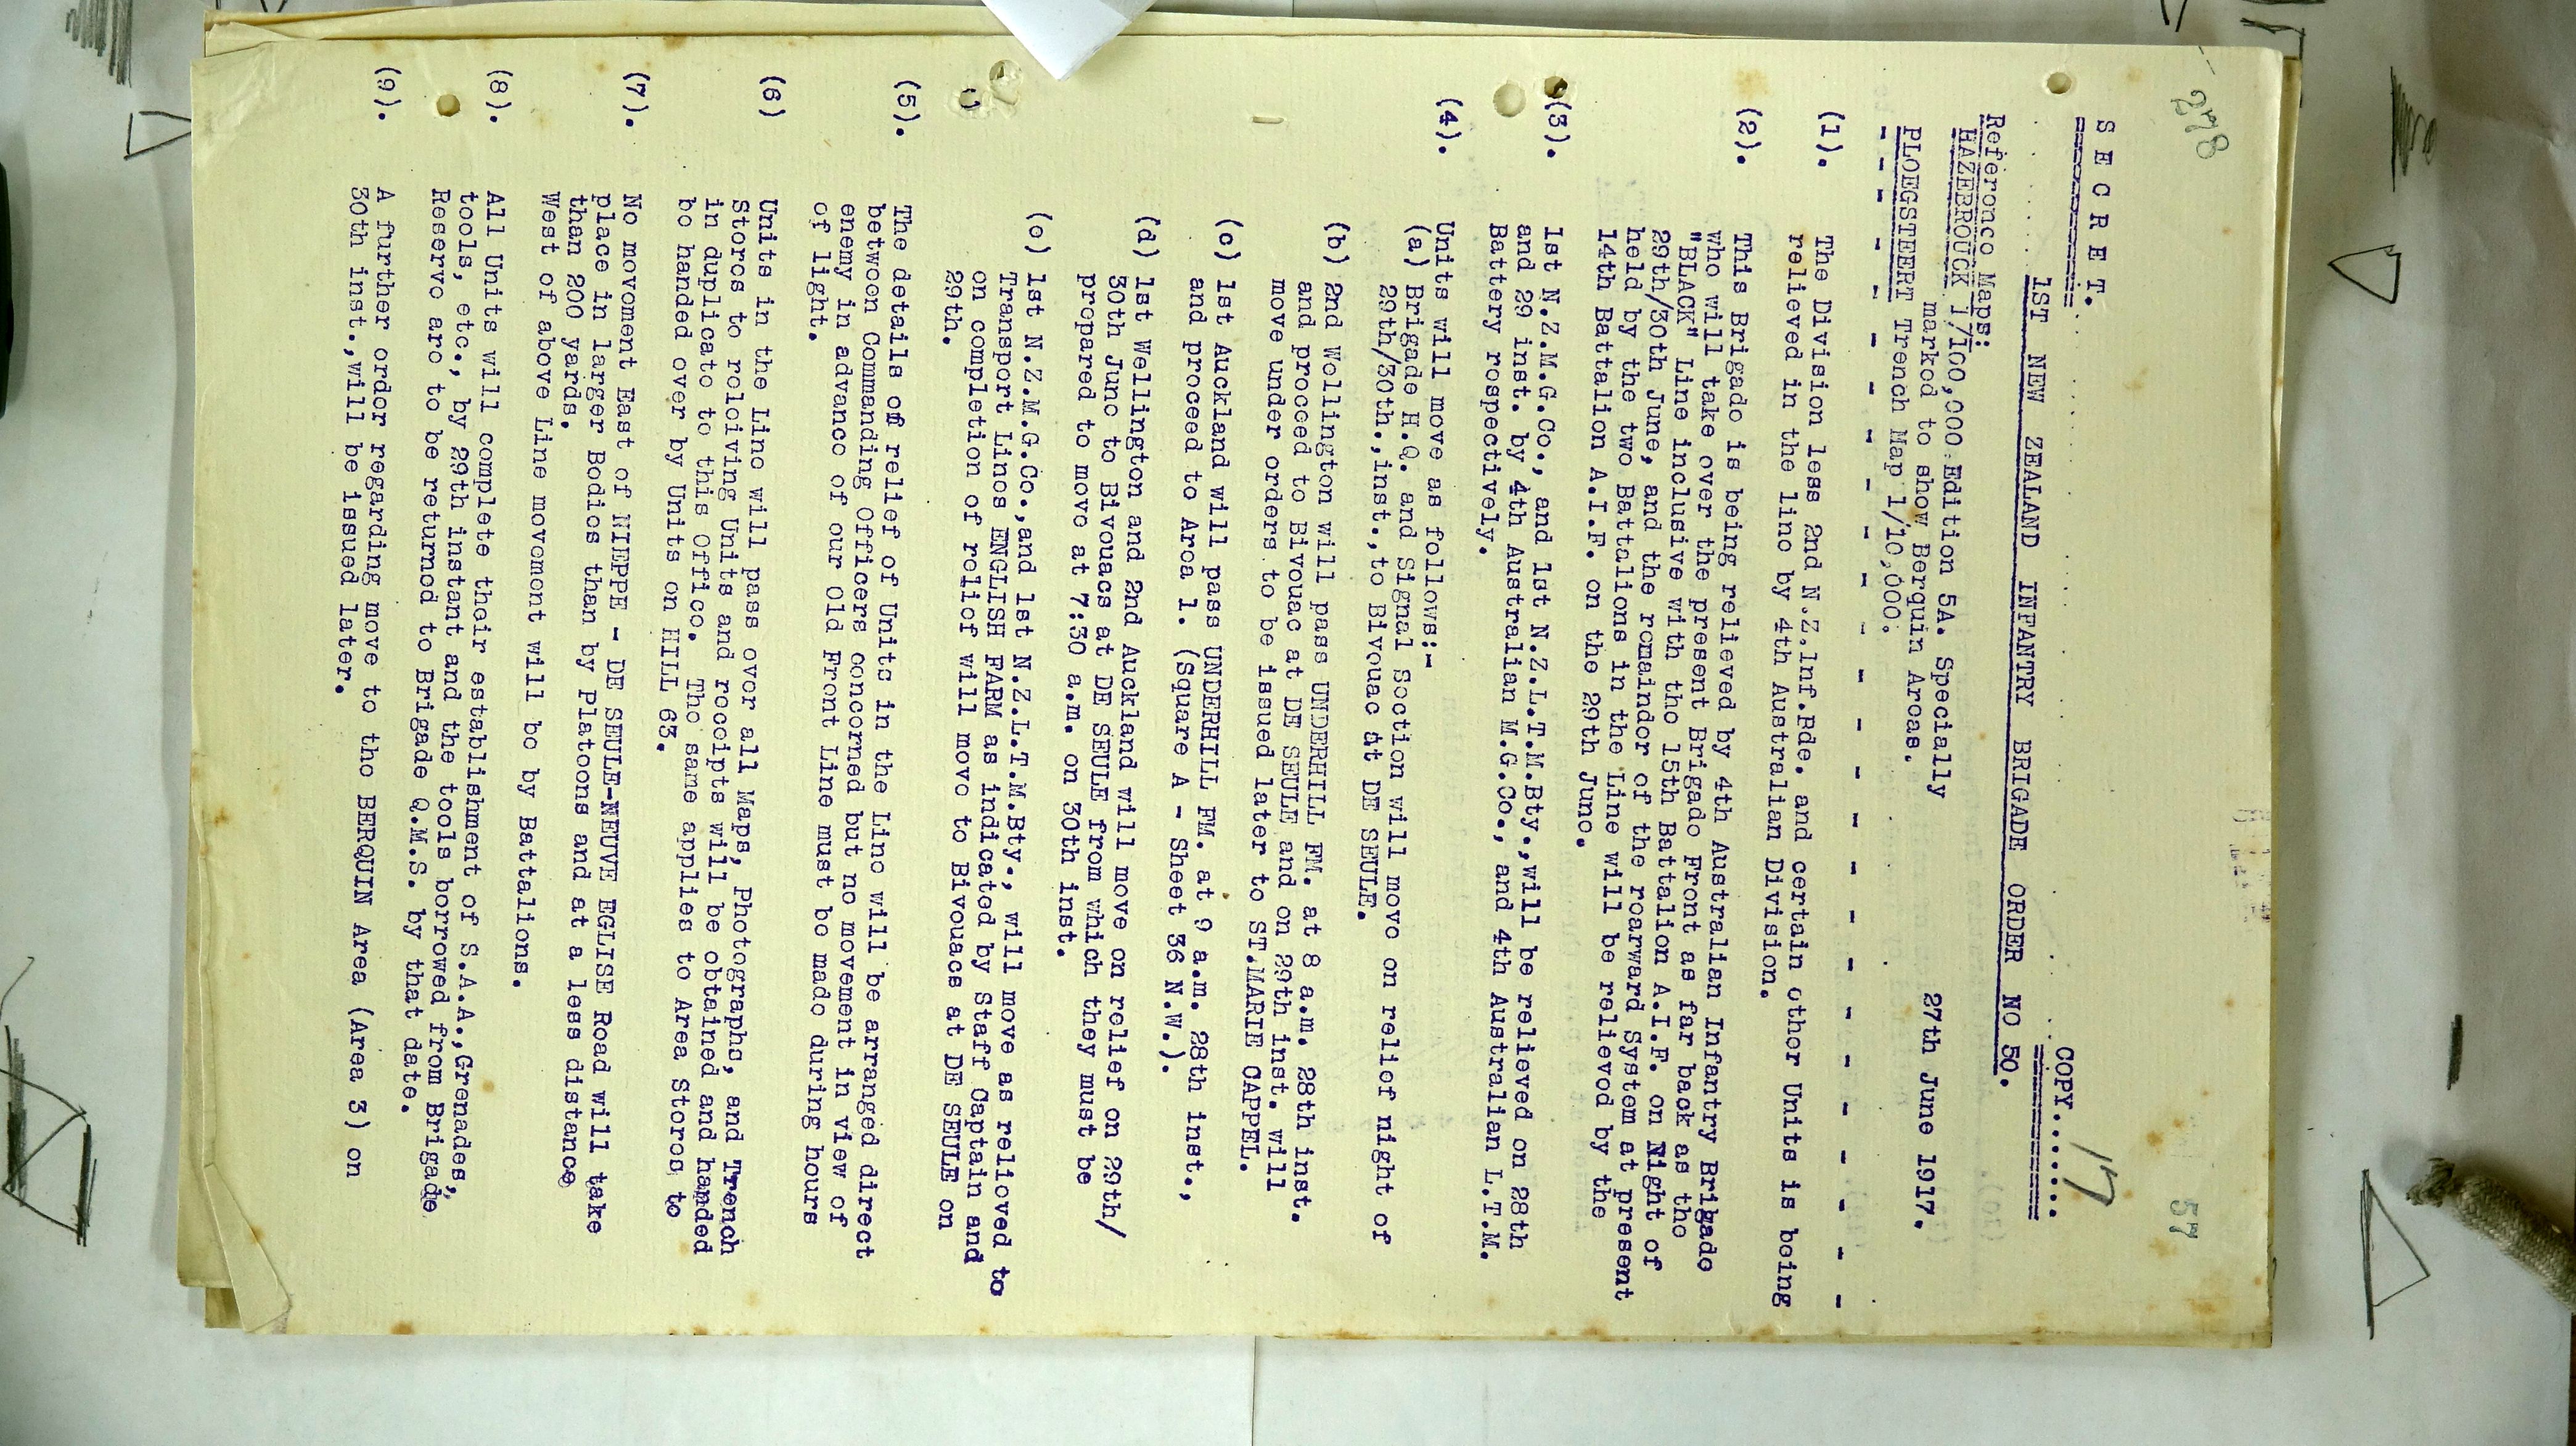 278
57
S E C R E T.
COPY....... 17
1ST NEW ZEALAND INFANTRY BRIGADE ORDER NO 50.
Reference Maps:
27th June 1917.
HAZEBROUCK 1/100,000 Edition 5A. Specially
marked to show Berquin Areas.
PLOEGSTEERT Trench Map 1/10,000.
(1). The Division less 2nd N.Z.Inf.Bde. and certain other Units is being
relieved in the line by 4th Australian Division.
(2). This Brigade is being relieved by 4th Australian Infantry Brigade
who will take over the present Brigade Front as far back as the
"BLACK" Line inclusive with the 15th Battalion A.I.F. on Night of
29th/30th June, and the remainder of the rearward System at present
held by the two Battalions in the Line will be relieved by the
14th Battalion A.I.F. on the 29th June.
(3). 1st N.Z.M.G.Co., and 1st N.Z.L.T.M.Bty.,will be relieved on 28th
and 29 inst. by 4th Australian M.G.Co., and 4th Australian L.T.M.
Battery respectively.
(4). Units will move as follows:-
(a) Brigade H.Q. and Signal Section will move on relief night of
29th/30th.,inst.,to Bivouac at DE SEULE.
(b) 2nd Wellington will pass UNDERHILL FM. at 8 a.m. 28th inst.
and proceed to Bivouac at DE SEULE and on 29th inst. will
move under orders to be issued later to ST.MARIE CAPPEL.
(c) 1st Auckland will pass UNDERHILL FM. at 9 a.m. 28th inst.,
and proceed to Area 1. (Square A - Sheet 36 N.W.).
(d) 1st Wellington and 2nd Auckland will move on relief on 29th/
30th June to Bivouacs at DE SEULE from which they must be
prepared to move at 7:30 a.m. on 30th inst.
(e) 1st N.Z.M.G.Co.,and 1st N.Z.L.T.M.Bty., will move as relieved to
Transport Lines ENGLISH FARM as indicated by Staff Captain and
on completion of relief will move to Bivouacs at DE SEULE on
29th.
(5). The details of relief of Units in the Line will be arranged direct
between Commanding Officers concerned but no movement in view of
enemy in advance of our Old Front Line must be made during hours
of light.
(6) Units in the Line will pass over all Maps, Photographs, and Trench
Stores to relciving Units and receipts will be obtained and handed
in duplicate to this Office. The same applies to Area Stores to
be handed over by Units on HILL 63.
(7). No movement East of NIEPPE - DE SEULE-NEUVE EGLISE Road will take
place in larger Bodies than by Platoons and at a less distance
than 200 yards.
West of above Line movement will be by Battalions.
(8). All Units will complete their establishment of S.A.A.,Grenades,
tools, etc., by 29th instant and the tools borrowed from Brigade
Reserve are to be returned to Brigade Q.M.S. by that date.
(9). A further order regarding move to the BERQUIN Area (Area 3) on
30th inst.,will be issued later.